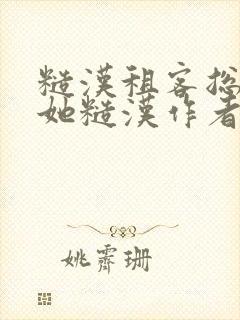 糙漢租客捴
她糙漢作者
姚霽珊